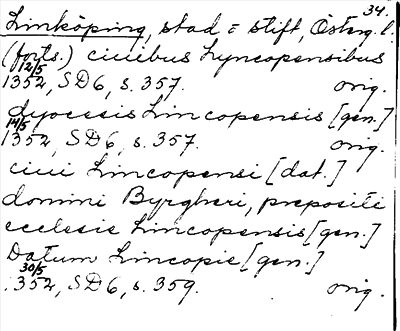 34.
Linköping, stad = stift, Österg. l.
(forts.) ciuibus Lyncopensibus
12/5
1352, SD6, s. 357. orig.
dyocesis Lincopensis [gen.]
14/5
1352, SD6, s. 357. orig.
ciui Lincopensi [dat.]
domini Byrgheri, prepositi
ecclesie Lincopensis [gen.]
Datum Lincopie [gen.]
30/5
1352, SD6, s. 359. orig.